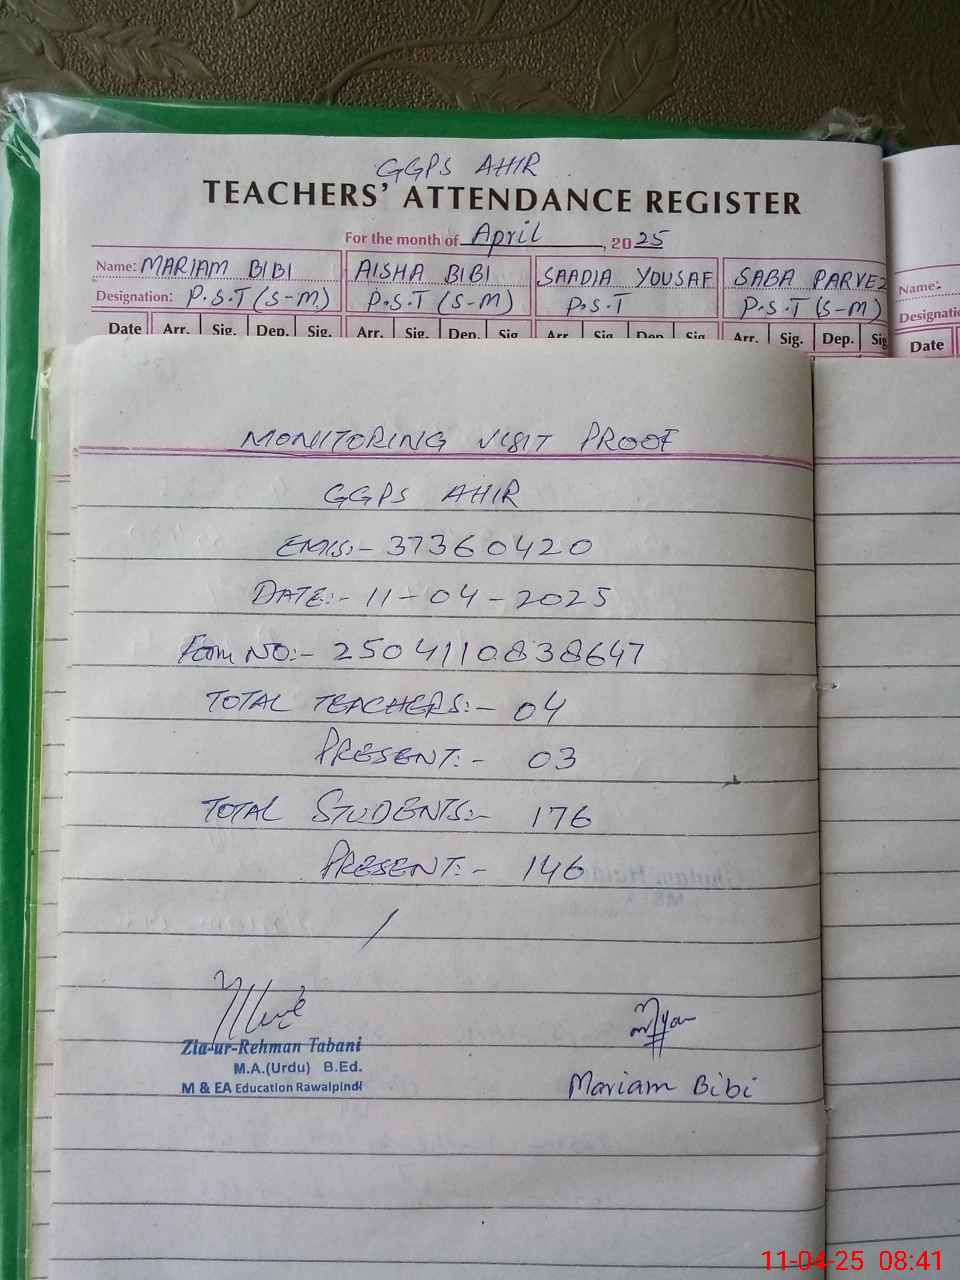 GGPS AHIR
TEACHERS' ATTENDANCE REGISTER
For the month of April, 2025
Name: MARIAM BIBI AISHA BIBI SAADIA YOUSAF SABA PARVEZ Name:
Designation: P.S.T (S-M) P.S.T (S-M) P.S.T P.S.T (S-M)
Date Arr. Sig. Dep. Sig. Arr. Sig. Dep. Sig Arr. Sig. Dep Sig Arr. Sig. Dep. Sig Date
MONITORING VISIT PROOF
GGPS AHIR
EMIS:- 37360420
DATE:- 11-04-2025
Form NO:- 2504110838647
TOTAL TEACHERS:- 04
PRESENT:- 03
TOTAL STUDENTS:- 176
PRESENT:- 146
Zia-ur-Rehman Tabani
M.A.(Urdu) B.Ed.
M & EA Education Rawalpindi
Mariam Bibi
11-04-25 08:41